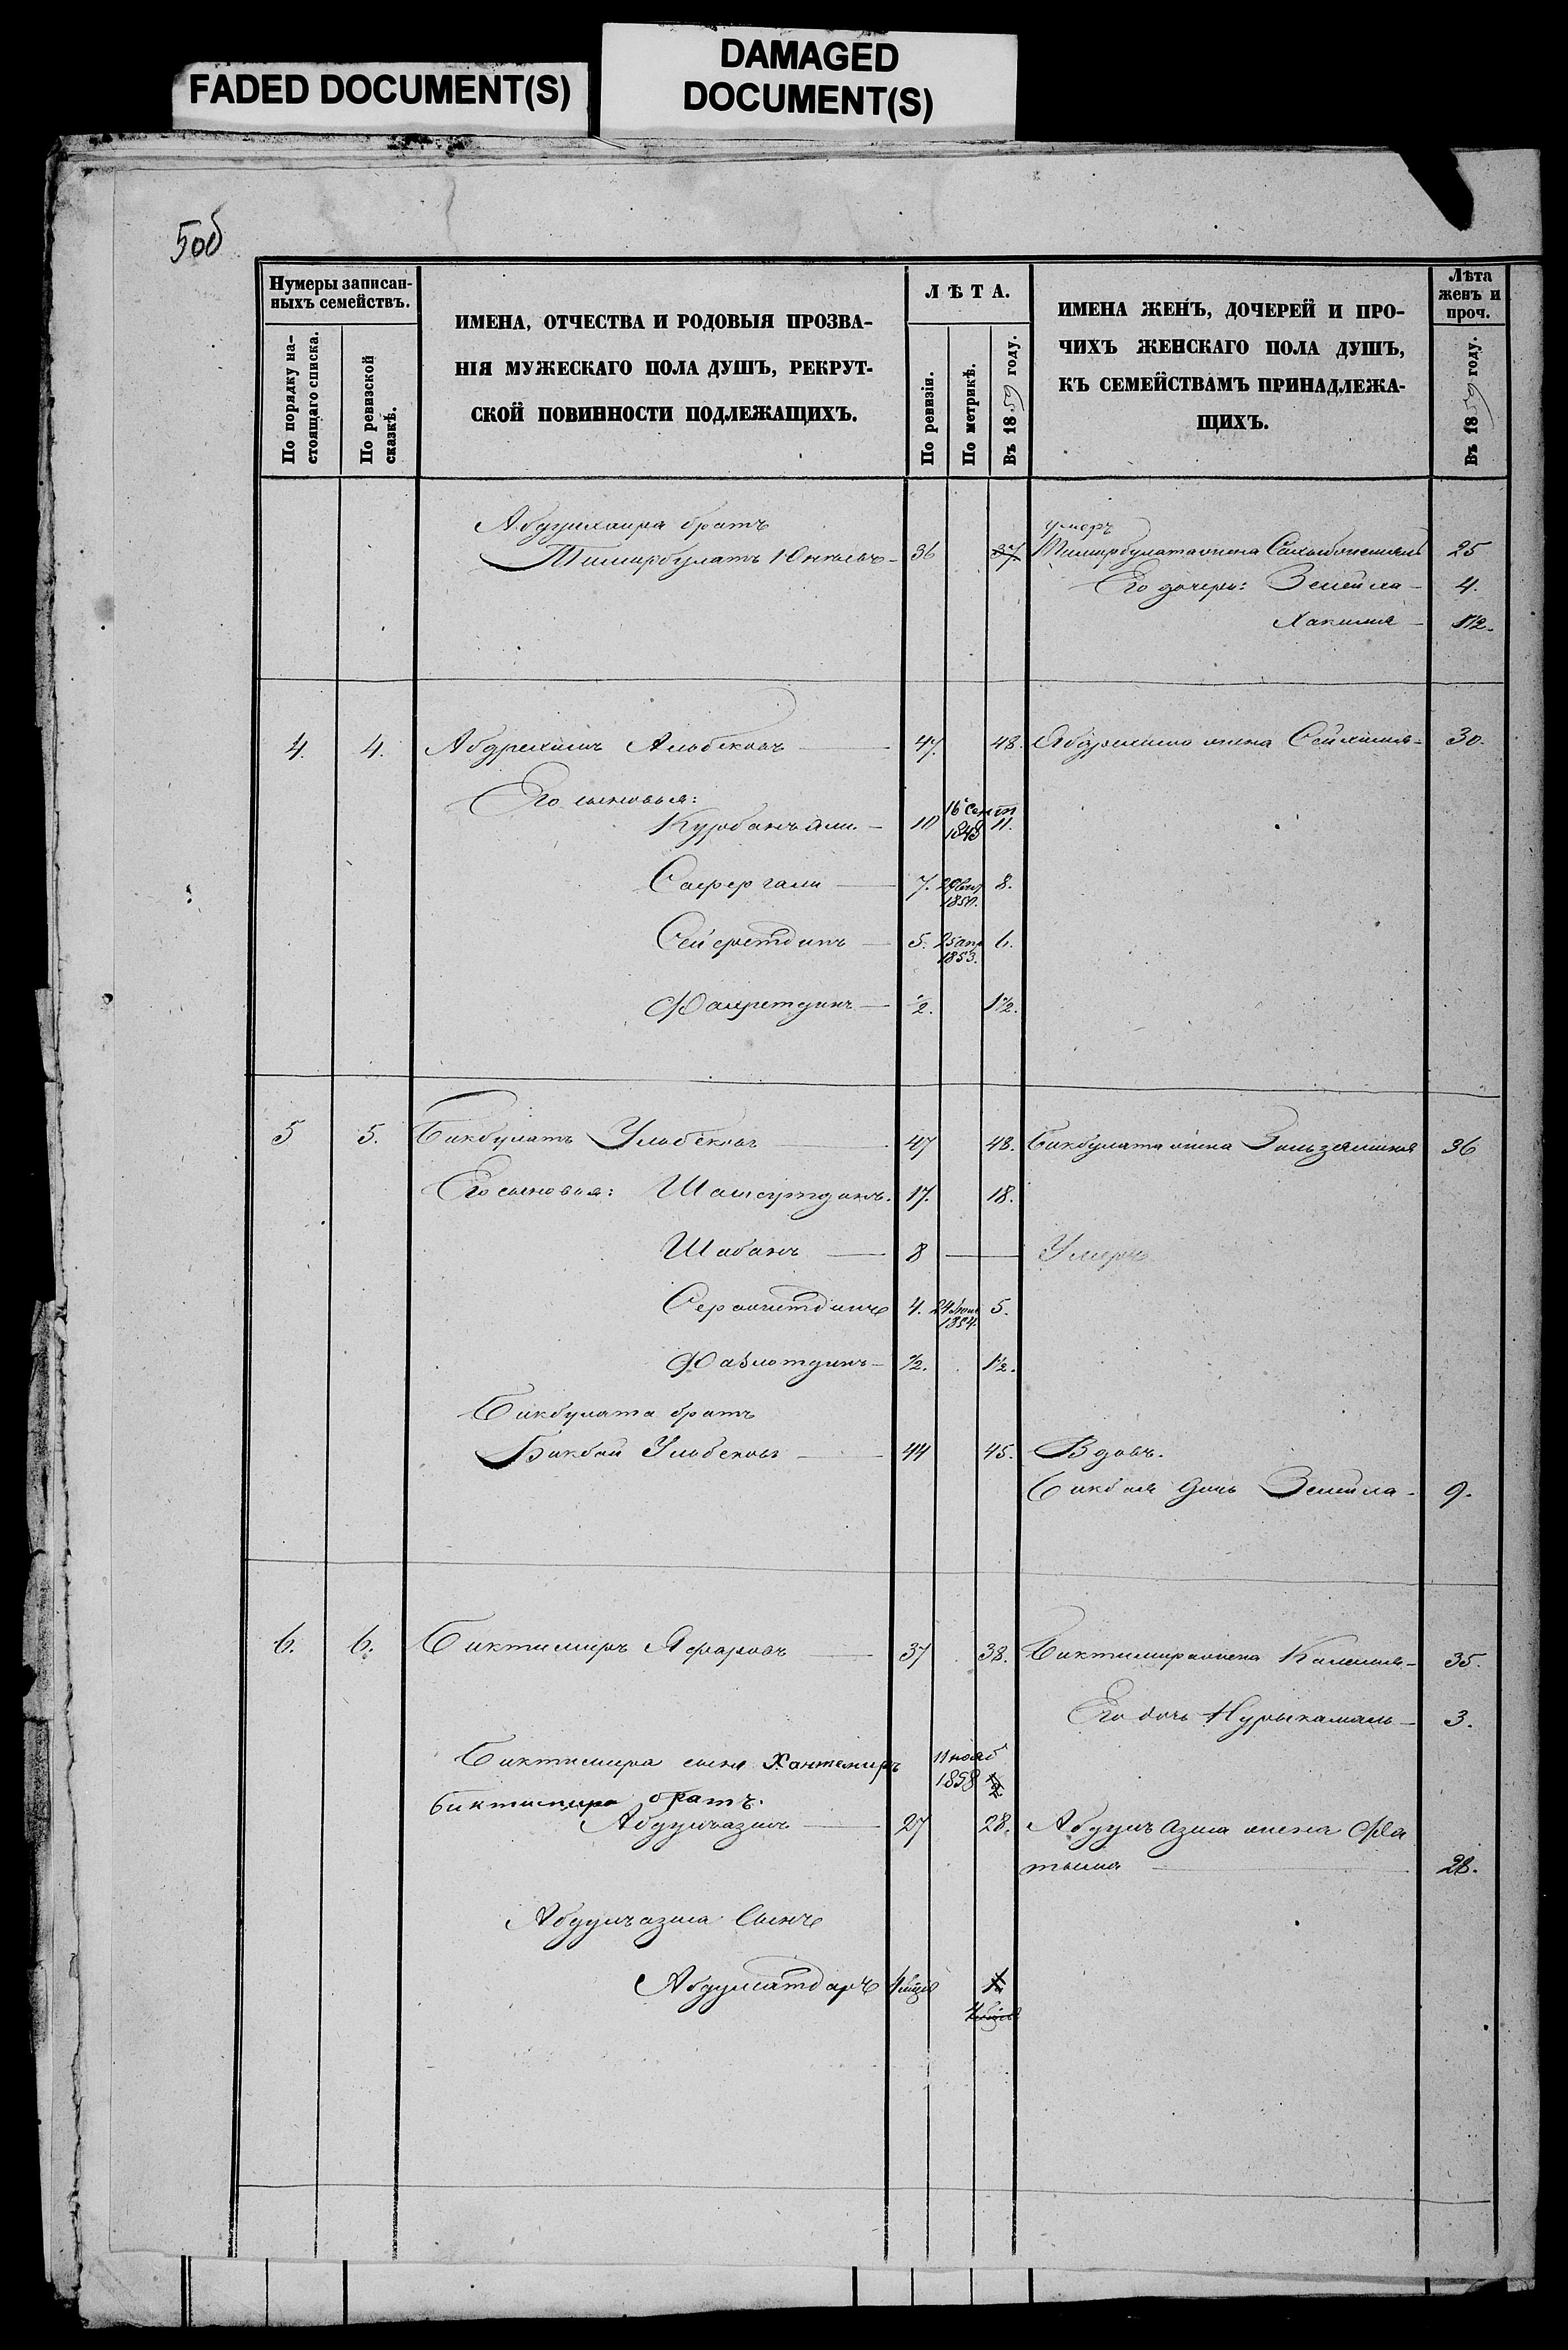 FADED DOCUMENT(S)
DAMAGED
DOCUMENT(S)
50б
Нумеры записан-
ныхъ семействъ.
По порядку на-
стоящаго списка.
По ревизской
сказкѣ.
ИМЕНА, ОТЧЕСТВА И РОДОВЫЯ ПРОЗВА-
НІЯ МУЖЕСКАГО ПОЛА ДУШЪ, РЕКРУТ-
СКОЙ ПОВИННОСТИ ПОДЛЕЖАЩИХЪ.
ЛѢТА.
По ревизіи.
По метрикѣ.
Въ 1859 году.
ИМЕНА ЖЕНЪ, ДОЧЕРЕЙ И ПРО-
ЧИХЪ ЖЕНСКАГО ПОЛА ДУШЪ,
КЪ СЕМЕЙСТВАМЪ ПРИНАДЛЕЖА-
ЩИХЪ.
Лѣта
женъ и
проч.
Въ 1859 году.
братъ умеръ
Тимирбулатъ 36 37. Тимирбулата жена 25
Его дочери: Зелейла 4.
Хакима 1½.
4. 4. Абдрехимъ 47. 48. Абдрехима жена 30.
Его сыновья: 16 Сент
Курбанъ али 10 1848 11.
Сафергали 7. 8.
Сейфетдинъ 5. 25 апр 6.
1853.
Фахретдинъ ½. 1½.
5 5. Бикбулатъ Ульбековъ 47 48. Бикбулата жена 36
Его сыновья: Шамсутдинъ. 17. 18.
Шабанъ 8 Умеръ
4. 24 Июн 5.
1854.
½. 1½.
Бикбулата братъ
Бикбай Ульбековъ 44 45. Вдовъ.
Бикбая дочь Зелейла 9.
6. 6. Биктимиръ Яфаровъ 37 38. Биктимира жена 35.
Его дочь Нурыкамаль 3.
Биктимира сынъ Хантемиръ 11 нояб
1858 ½
Биктимира братъ.
Абдулъазимъ 27 28. Абдулъ Азима жена Фа
тыма 28.
Абдулъазима Сынъ
Абдулсатдаръ 1